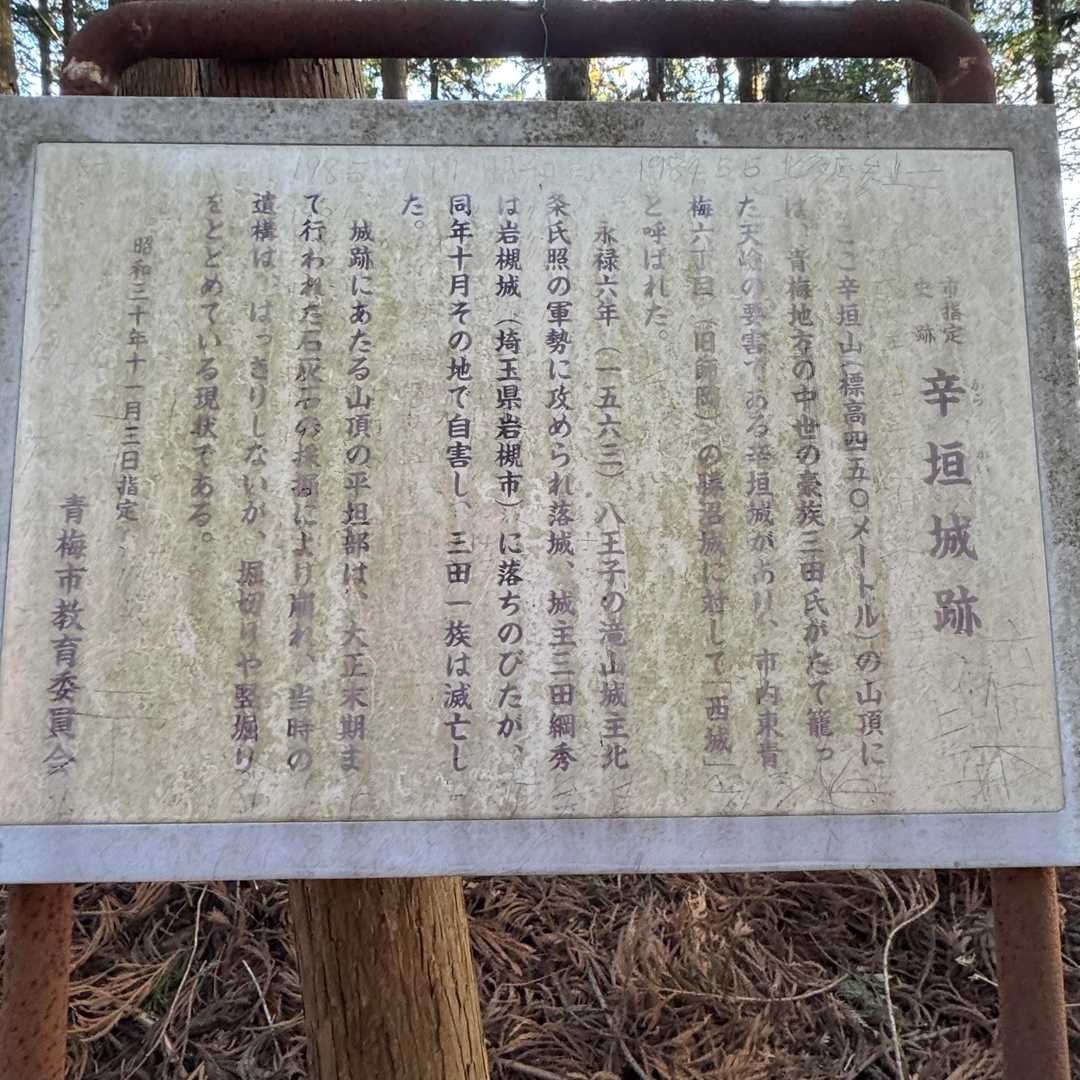 市指定
史跡
辛垣城跡
からかい
ここ辛垣山(標高四五〇メートル)の山頂に
は、青梅地方の中世の豪族三田氏がたて籠っ
た天嶮の要害である辛垣城があり、市内東青
梅六丁目(旧師岡)の勝沼城に対して「西城」
と呼ばれた。
永禄六年(一五六三)八王子の滝山城主北
条氏照の軍勢に攻められ落城、城主三田綱秀
は岩槻城(埼玉県岩槻市)に落ちのびたが、
同年十月その地で自害し、三田一族は滅亡し
た。
城跡にあたる山頂の平坦部は、大正末期ま
で行われた石灰石の採掘により崩れ、当時の
遺構は、はっきりしないが、堀切りや竪堀り
をとどめている現状である。
昭和三十年十一月三日指定
青梅市教育委員会
1989.5.5